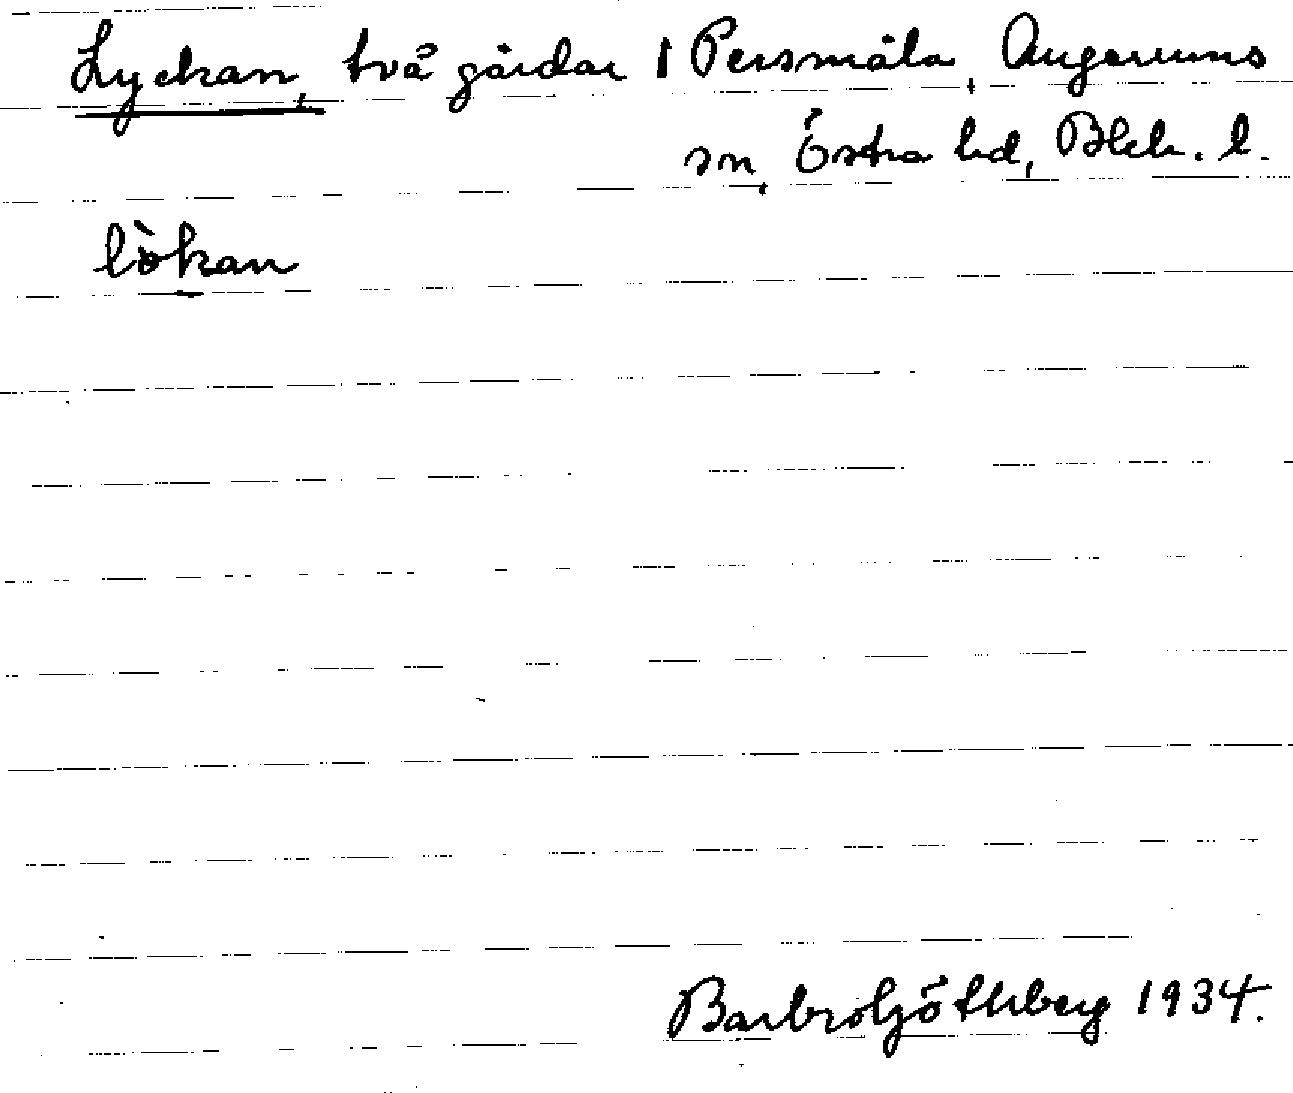 Lyckan, två gårdar i Persmåla, Augerums
sn, Östra hd, Blek. l.
lökan
Barbro Göthberg 1934.